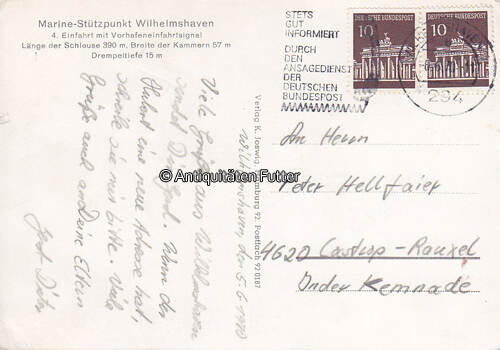 Marine-Stützpunkt Wilhelmshaven
4. Einfahrt mit Vorhafeneinfahrtsignal
Länge der Schleuse 390 m, Breite der Kammern 57 m
Drempeltiefe 15 m
STETS
GUT
INFORMIERT
DURCH
DEN
ANSAGEDIENST
DER
DEUTSCHEN
BUNDESPOST
10 DEUTSCHE BUNDESPOST
10 DEUTSCHE BUNDESPOST
294
Verlag K. Joswig, Hamburg 92, Postfach 92 0187
© Antiquitäten Futter
Wilhelmshaven, den 5.6.1970
Viele Grüße aus Wilhelmshaven
sendet Dir Gerd. Wenn du
Hubert eine neue Adresse hat,
schreibe sie mir bitte. Viele
Grüße auch an Deine Eltern
An Herrn
Peter Hellfaier
4620 Castrop-Rauxel
Under Kemnade